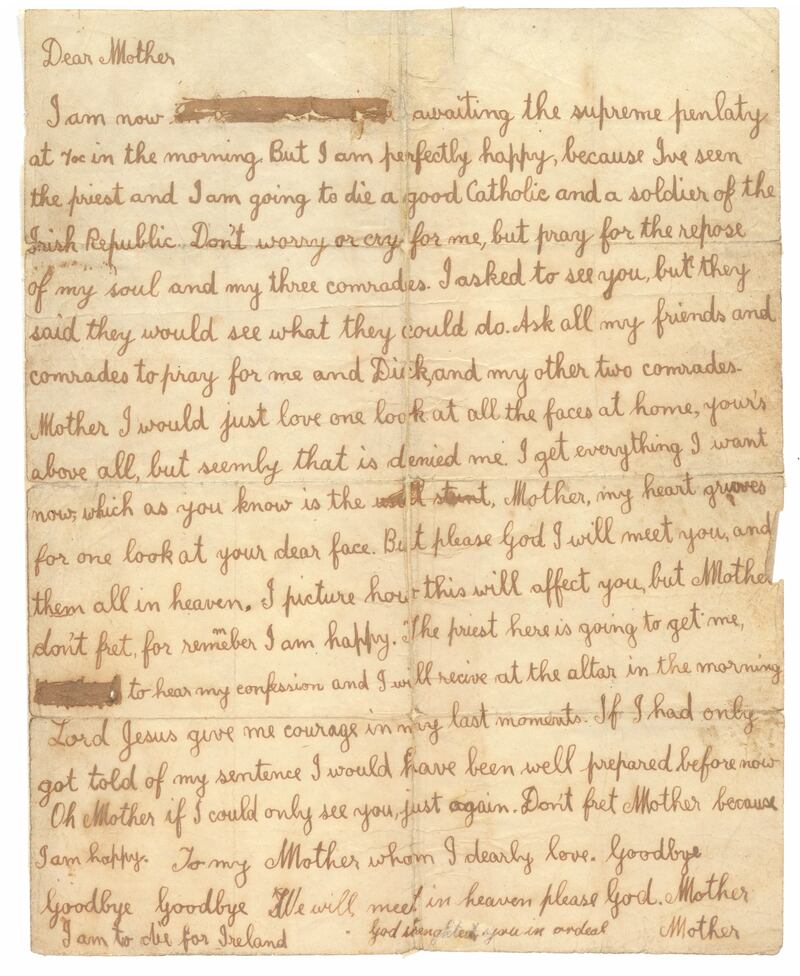 Dear Mother
I am now awaiting the supreme penlaty
at 7oc in the morning. But I am perfectly happy, because I've seen
the priest and I am going to die a good Catholic and a soldier of the
Irish Republic. Don't worry or cry for me, but pray for the repose
of my soul and my three comrades. I asked to see you, but they
said they would see what they could do. Ask all my friends and
comrades to pray for me and Dick, and my other two comrades-
Mother I would just love one look at all the faces at home, your's
above all, but seemly that is denied me. I get everything I want
now, which as you know is the stunt, Mother, my heart grieves
for one look at your dear face. But please God I will meet you, and
them all in heaven. I picture how this will affect you, but Mother
don't fret, for remember I am happy. The priest here is going to get me,
to hear my confession and I will recive at the altar in the morning
Lord Jesus give me courage in my last moments. If I had only
got told of my sentence I would have been well prepared before now
Oh Mother if I could only see you, just again. Don't fret Mother because
I am happy. To my Mother whom I dearly love. Goodbye
Goodbye Goodbye We will meet in heaven please God. Mother
I am to die for Ireland God you in ordeal Mother